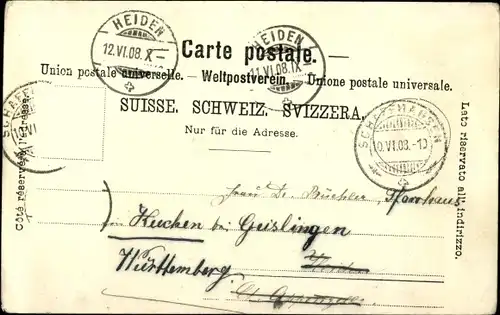 HEIDEN
12.VI.08.X-
HEIDEN
11.VI.08.IX
Carte postale.
Union postale universelle. — Weltpostverein. — Unione postale universale.
SUISSE. SCHWEIZ. SVIZZERA.
Nur für die Adresse.
SCHAFFHAUSEN
10.VI.08.-10
Côté réservé à l'adresse.
Lato riservato all'indirizzo.
Frau Dr. Büchler, Pfarrhaus
Kuchen bei Geislingen
Württemberg.
Heiden
Ct. Appenzell.